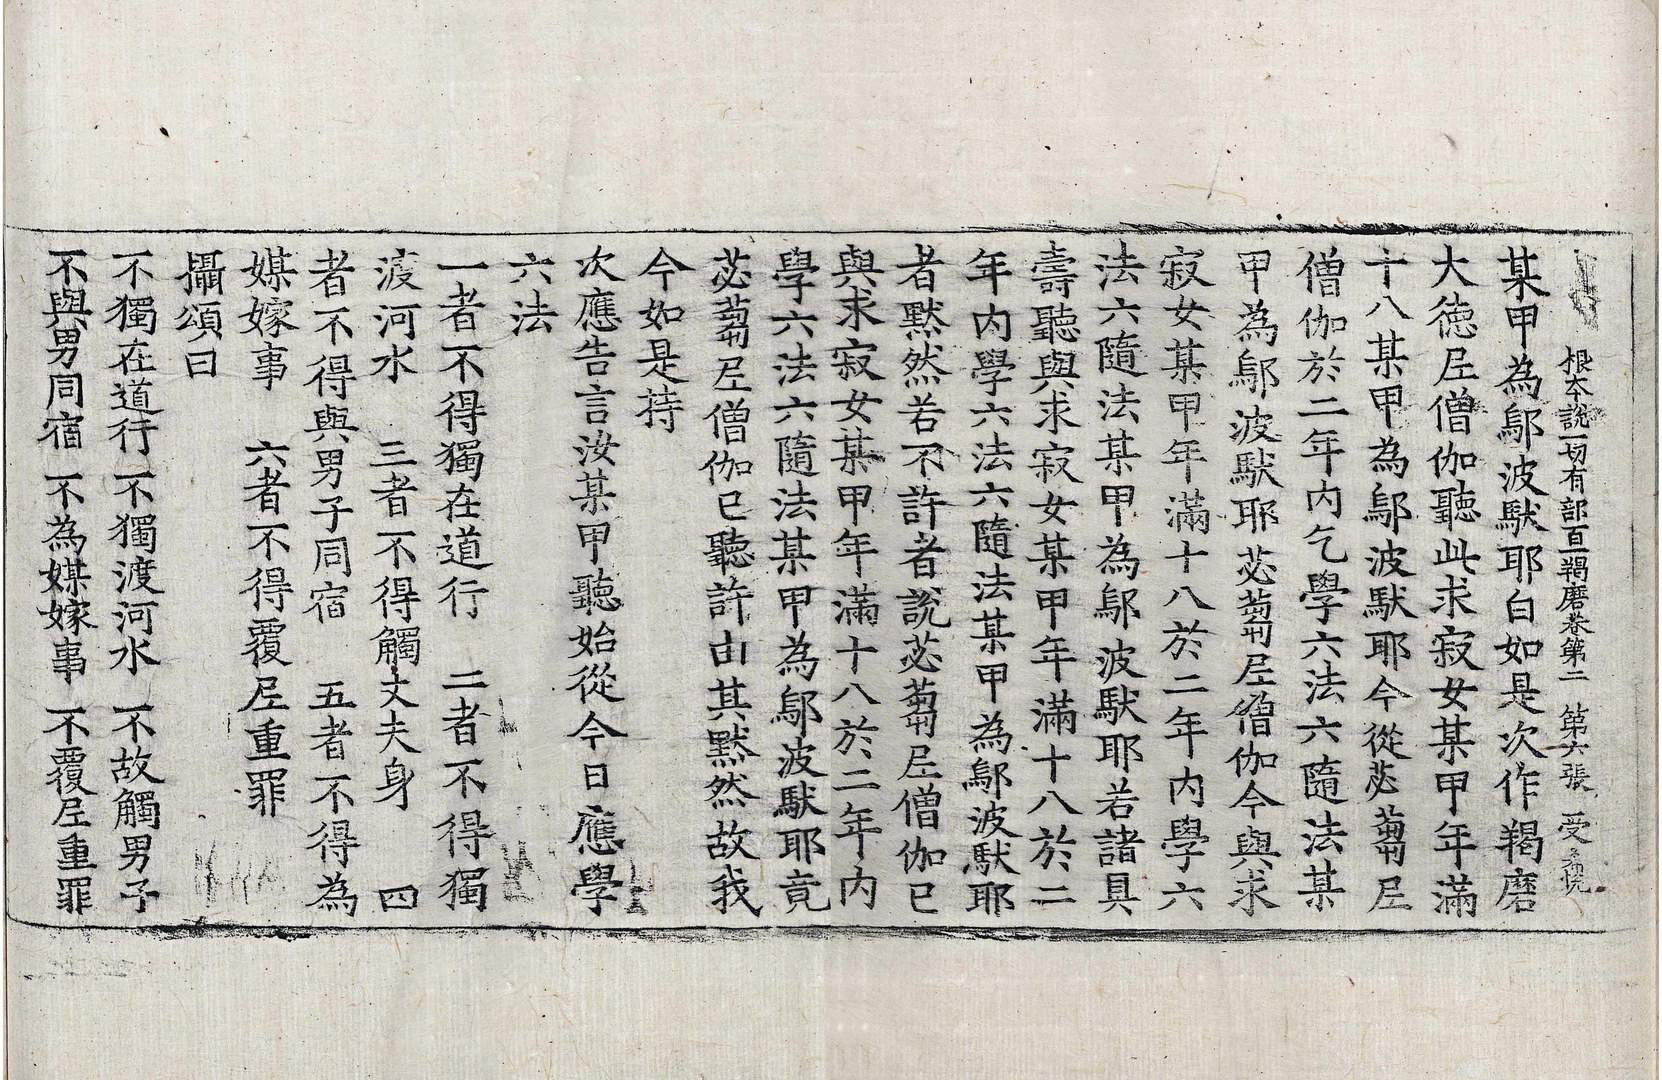 根本說一切有部百一羯磨卷第二　第六張　受
某甲為鄔波馱耶白如是次作羯磨
大德尼僧伽聽此求寂女某甲年滿
十八某甲為鄔波馱耶今從苾蒭尼
僧伽於二年內乞學六法六隨法某
甲為鄔波馱耶苾蒭尼僧伽今與求
寂女某甲年滿十八於二年內學六
法六隨法某甲為鄔波馱耶若諸具
壽聽與求寂女某甲年滿十八於二
年內學六法六隨法某甲為鄔波馱耶
者默然若不許者說苾蒭尼僧伽已
與求寂女某甲年滿十八於二年內
學六法六隨法某甲為鄔波馱耶竟
苾蒭尼僧伽已聽許由其默然故我
今如是持
次應告言汝某甲聽始從今日應學
六法
一者不得獨在道行　二者不得獨
渡河水　三者不得觸丈夫身　四
者不得與男子同宿　五者不得為
媒嫁事　六者不得覆尼重罪
攝頌曰
不獨在道行　不獨渡河水　不故觸男子
不與男同宿　不為媒嫁事　不覆尼重罪